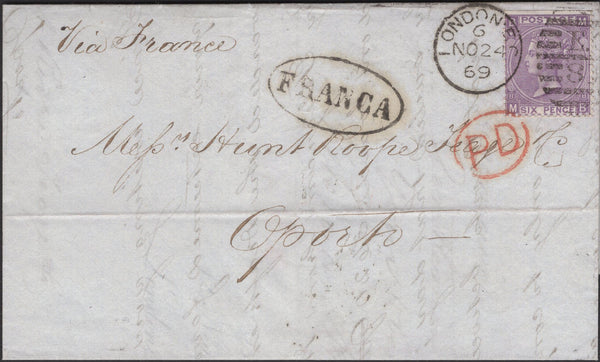 Via France
LONDON E
6
NO 24
69
POSTAGE
M
SIX PENCE
FRANCA
PD
Messrs Hunt Roope Teage & Co
Oporto